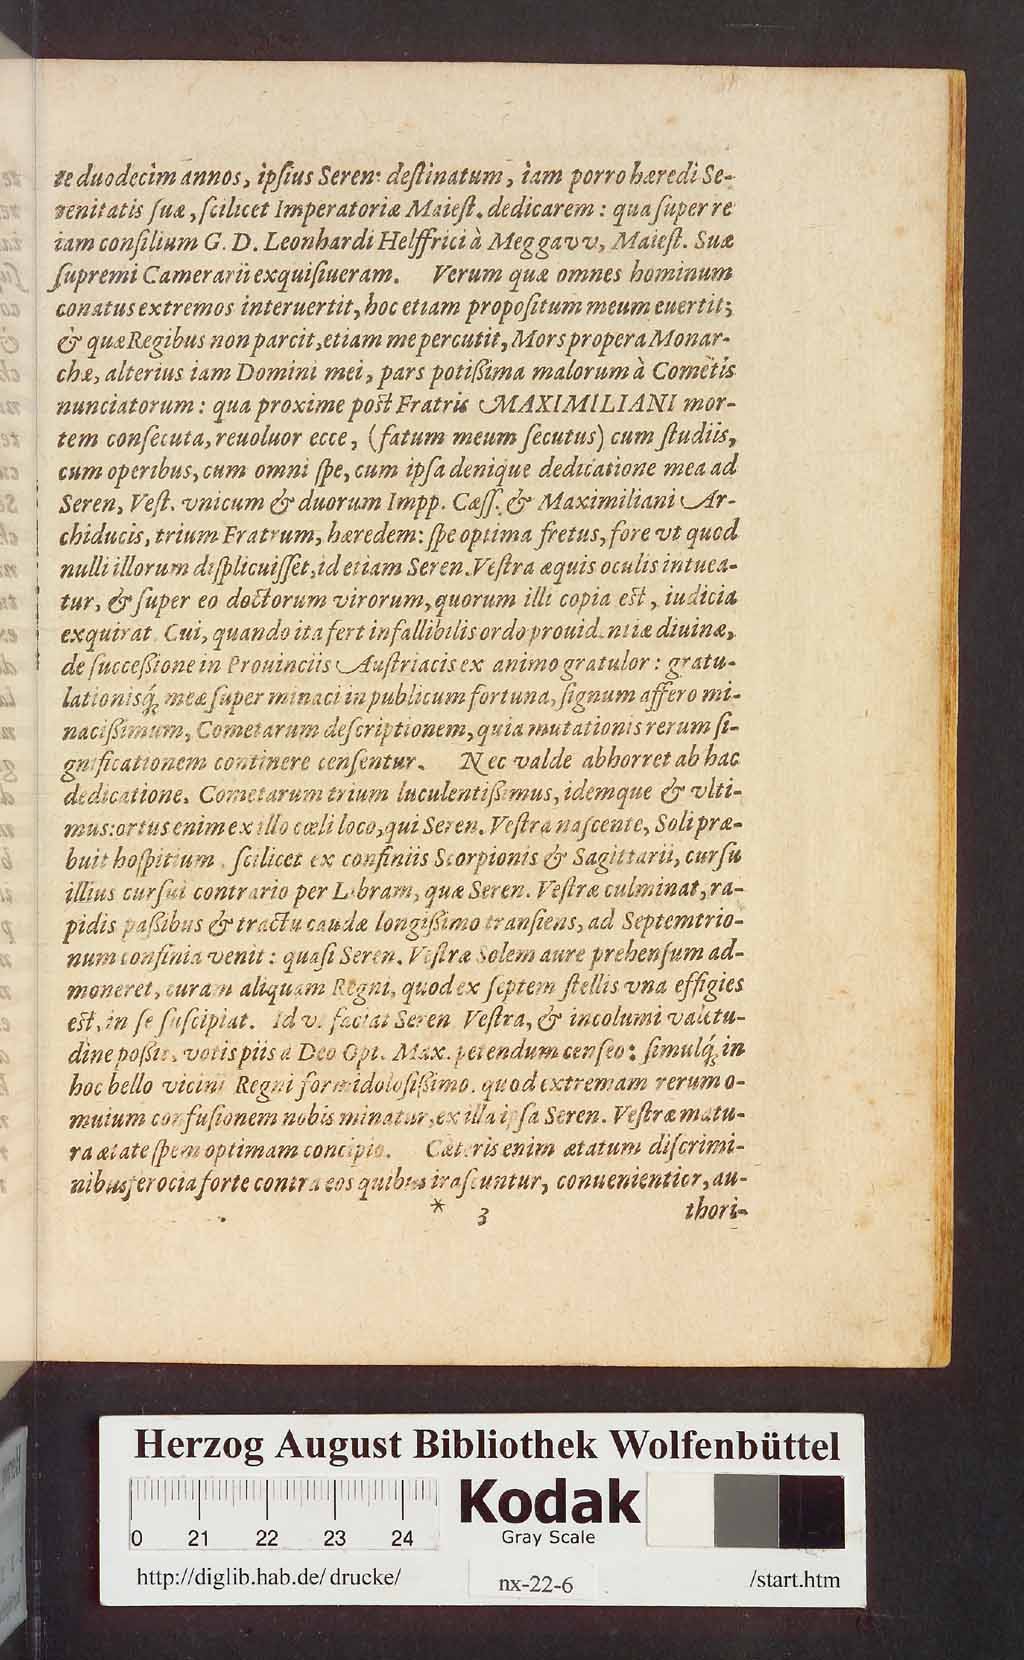 te duodecim annos, ipſius Seren: deſtinatum, iam porro hæredi Se-
renitatis ſuæ, ſcilicet Imperatoriæ Maieſt. dedicarem: qua ſuper re
iam conſilium G. D. Leonhardi Helffrici à Meggavv, Maieſt. Suæ
ſupremi Camerarii exquiſiueram. Verum quæ omnes hominum
conatus extremos interuertit, hoc etiam propoſitum meum euertit;
& quæ Regibus non parcit, etiam me percutit, Mors propera Monar-
chæ, alterius iam Domini mei, pars potißima malorum à Cometis
nunciatorum: qua proxime post Fratris MAXIMILIANI mor-
tem conſecuta, reuoluor ecce, (fatum meum ſecutus) cum ſtudiis,
cum operibus, cum omni ſpe, cum ipſa denique dedicatione mea ad
Seren, Veſt. vnicum & duorum Impp. Cæſſ. & Maximiliani Ar-
chiducis, trium Fratrum, hæredem: ſpe optima fretus, fore vt quod
nulli illorum diſplicuiſſet, id etiam Seren. Veſtra æquis oculis intuea-
tur, & ſuper eo doctorum virorum, quorum illi copia est, iudicia
exquirat. Cui, quando ita fert infallibilis ordo prouidentiæ diuinæ,
de ſucceßione in Prouinciis Auſtriacis ex animo gratulor: gratu-
lationisq́; meæ ſuper minaci in publicum fortuna, ſignum affero mi-
nacißimum, Cometarum deſcriptionem, quia mutationis rerum ſi-
gnificationem continere cenſentur. Nec valde abhorret ab hac
dedicatione. Cometarum trium luculentißimus, idemque & vlti-
mus: ortus enim ex illo cœli loco, qui Seren. Veſtra naſcente, Soli præ-
buit hoſpitium, ſcilicet ex confiniis Scorpionis & Sagittarii, curſu
illius curſui contrario per Libram, quæ Seren. Veſtræ culminat, ra-
pidis paßibus & tractu caudæ longißimo tranſiens, ad Septemtrio-
num confinia venit: quaſi Seren. Veſtræ Solem aure prehenſum ad-
moneret, curam aliquam Regni, quod ex ſeptem ſtellis vna effigies
est, in ſe ſuſcipiat. Id vt faciat Seren Veſtra, & incolumi valetu-
dine poßit, votis piis à Deo Opt. Max. petendum cenſeo: ſimulq́; in
hoc bello vicini Regni formidoloſißimo, quod extremam rerum o-
muium confuſionem nobis minatur, ex illa ipſa Seren. Veſtræ matu-
ra ætate ſpem optimam concipio. Cæteris enim ætatum diſcrimi-
nibus ferocia forte contra eos quibus iraſcuntur, conuenientior, au-
* 3 thori-
Herzog August Bibliothek Wolfenbüttel
0 21 22 23 24
Kodak
Gray Scale
http://diglib.hab.de/drucke/ nx-22-6 /start.htm